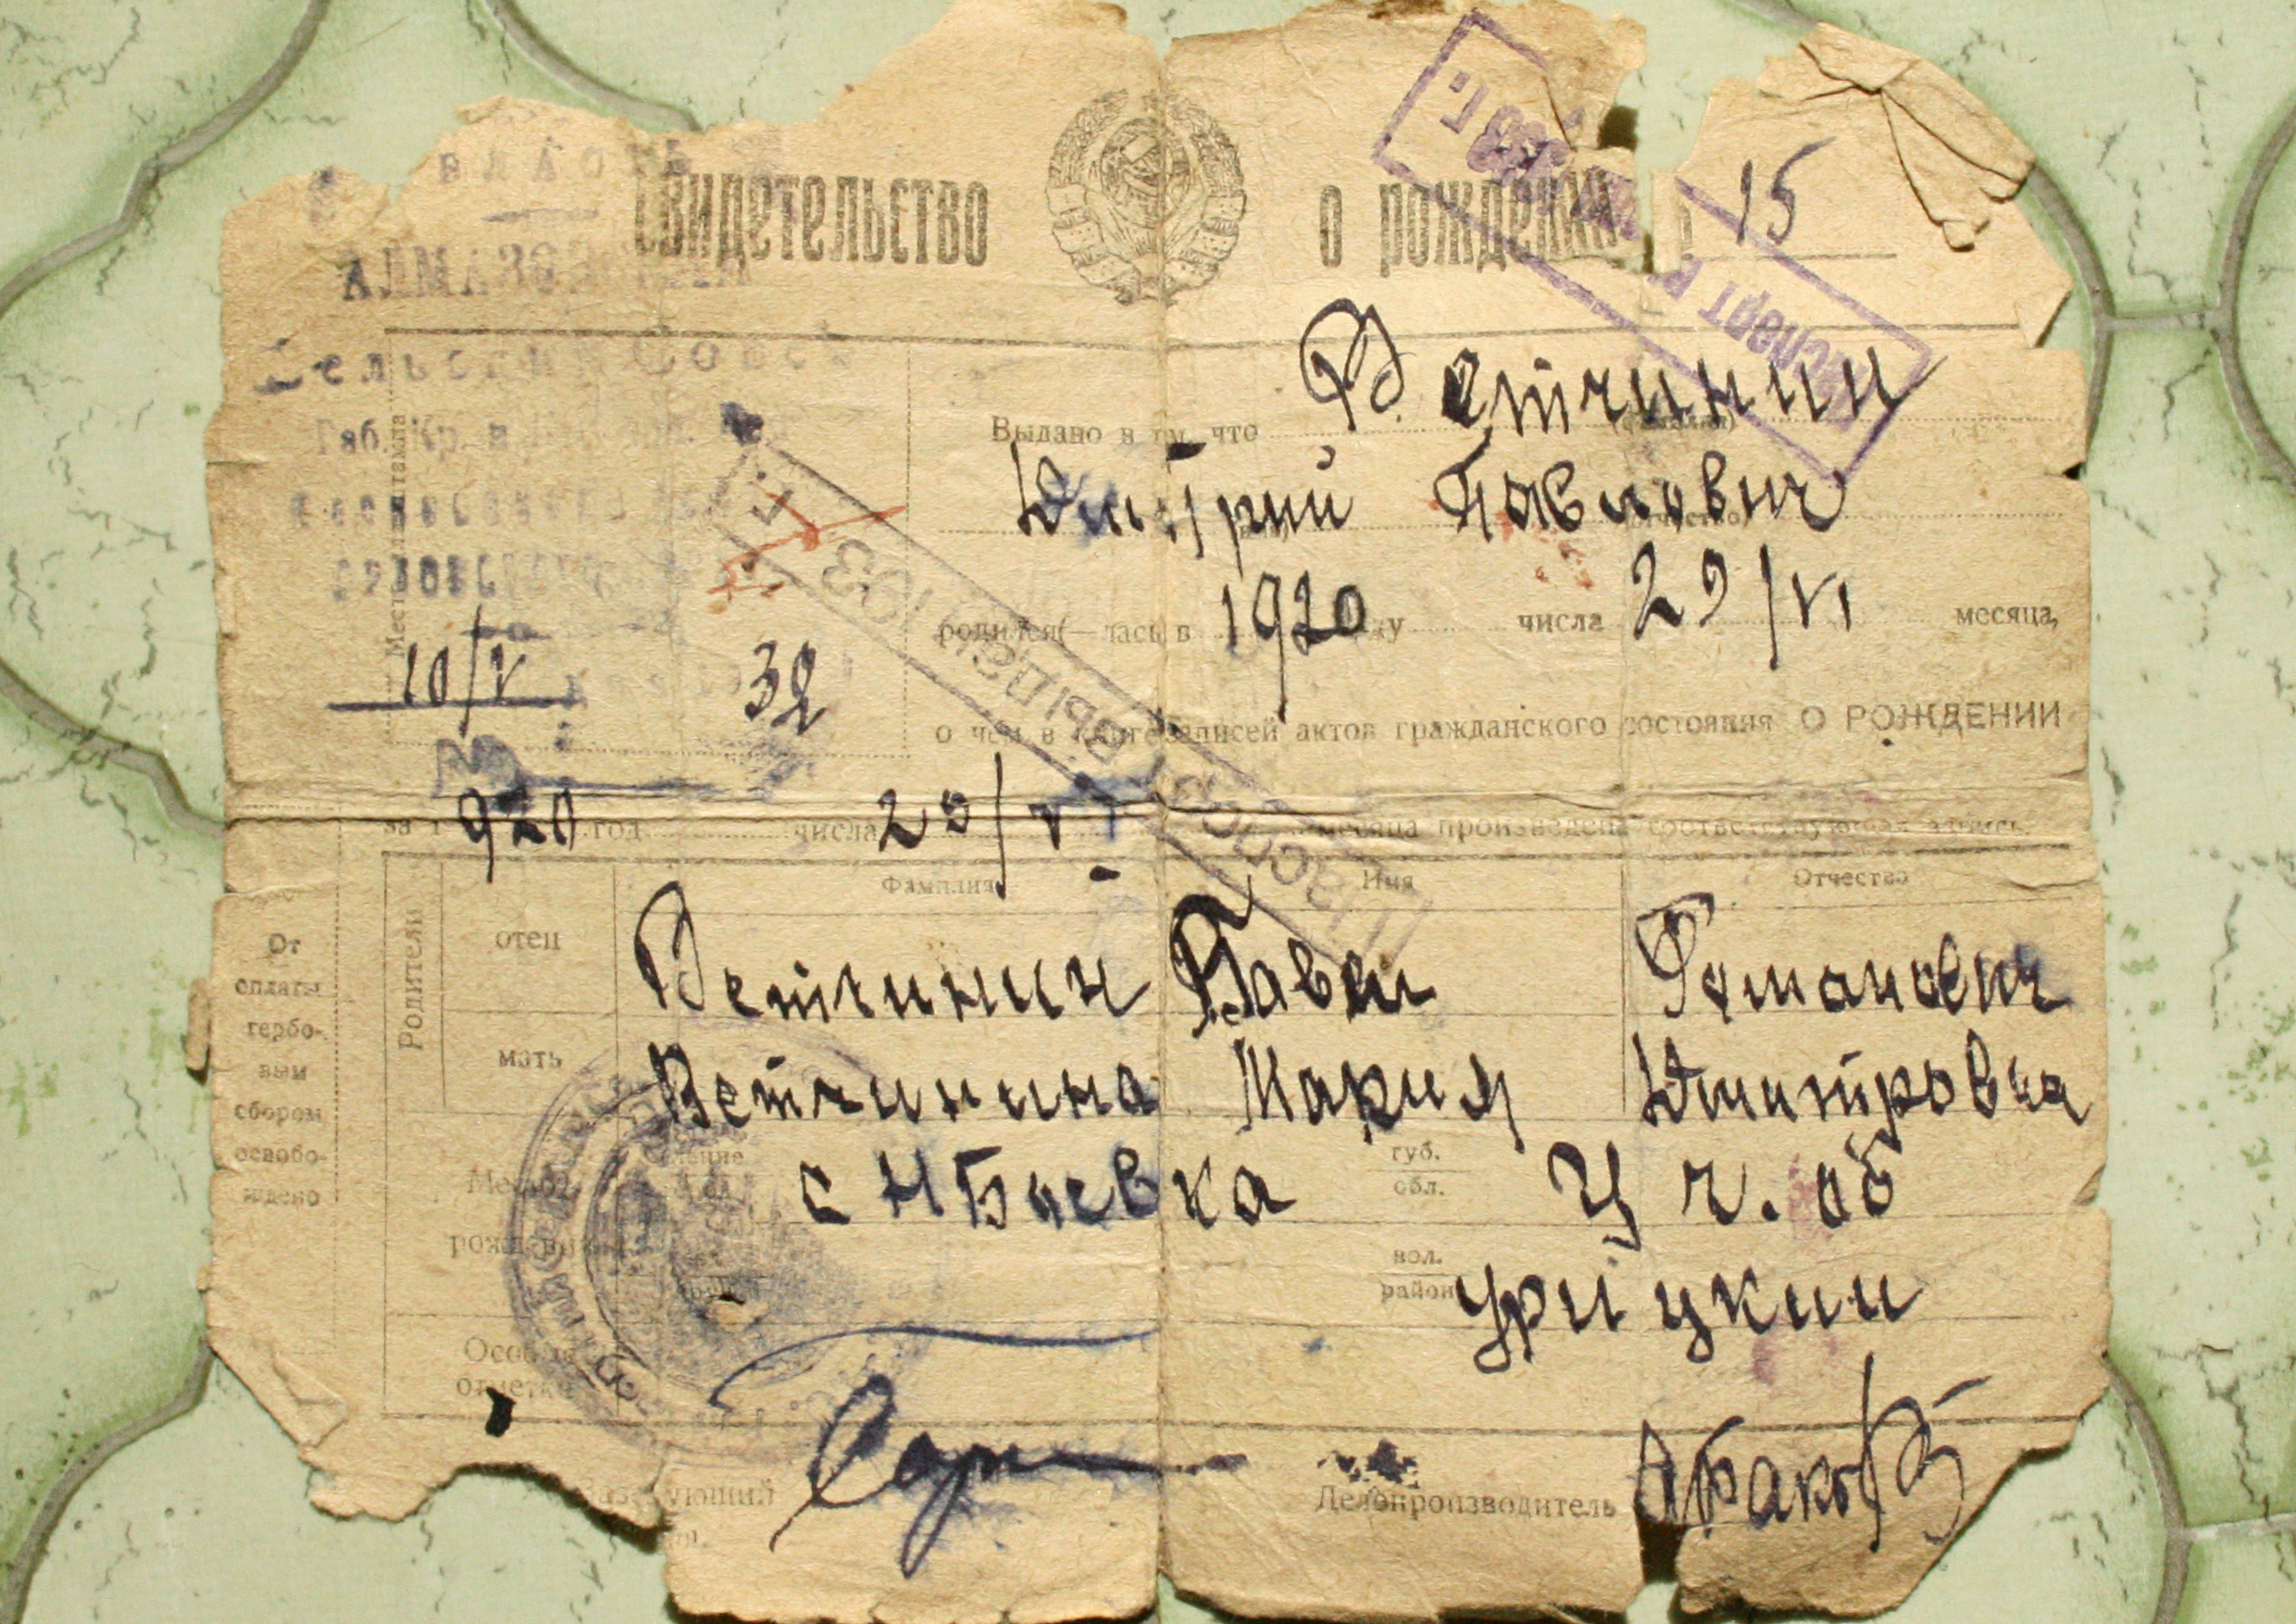 Свидетельство о рождении 15
АЛМАЗОВ
Сельский Совет
Выдано в том, что Ветчинин
(фамилия)
Дмитрий Павлович
(отчество)
родился(—лась) в 1920 году числа 29/VI месяца,
10/V 32
о чем в книге записей актов гражданского состояния О РОЖДЕНИИ
за 1920 год числа 29/VI месяца произведена соответствующая запись.
Фамилия Имя Отчество
Родители
отец Ветчинин Павел Романович
мать Ветчинина Мария Дмитровна
От оплаты гербовым сбором освобождено
Место рождения
селение с Н Баевка губ. обл. У ч. об
вол. район Урицкии
Особые отметки
Заведующий
Делопроизводитель
Паспорт выдан 193 г.
Паспорт 193 г.